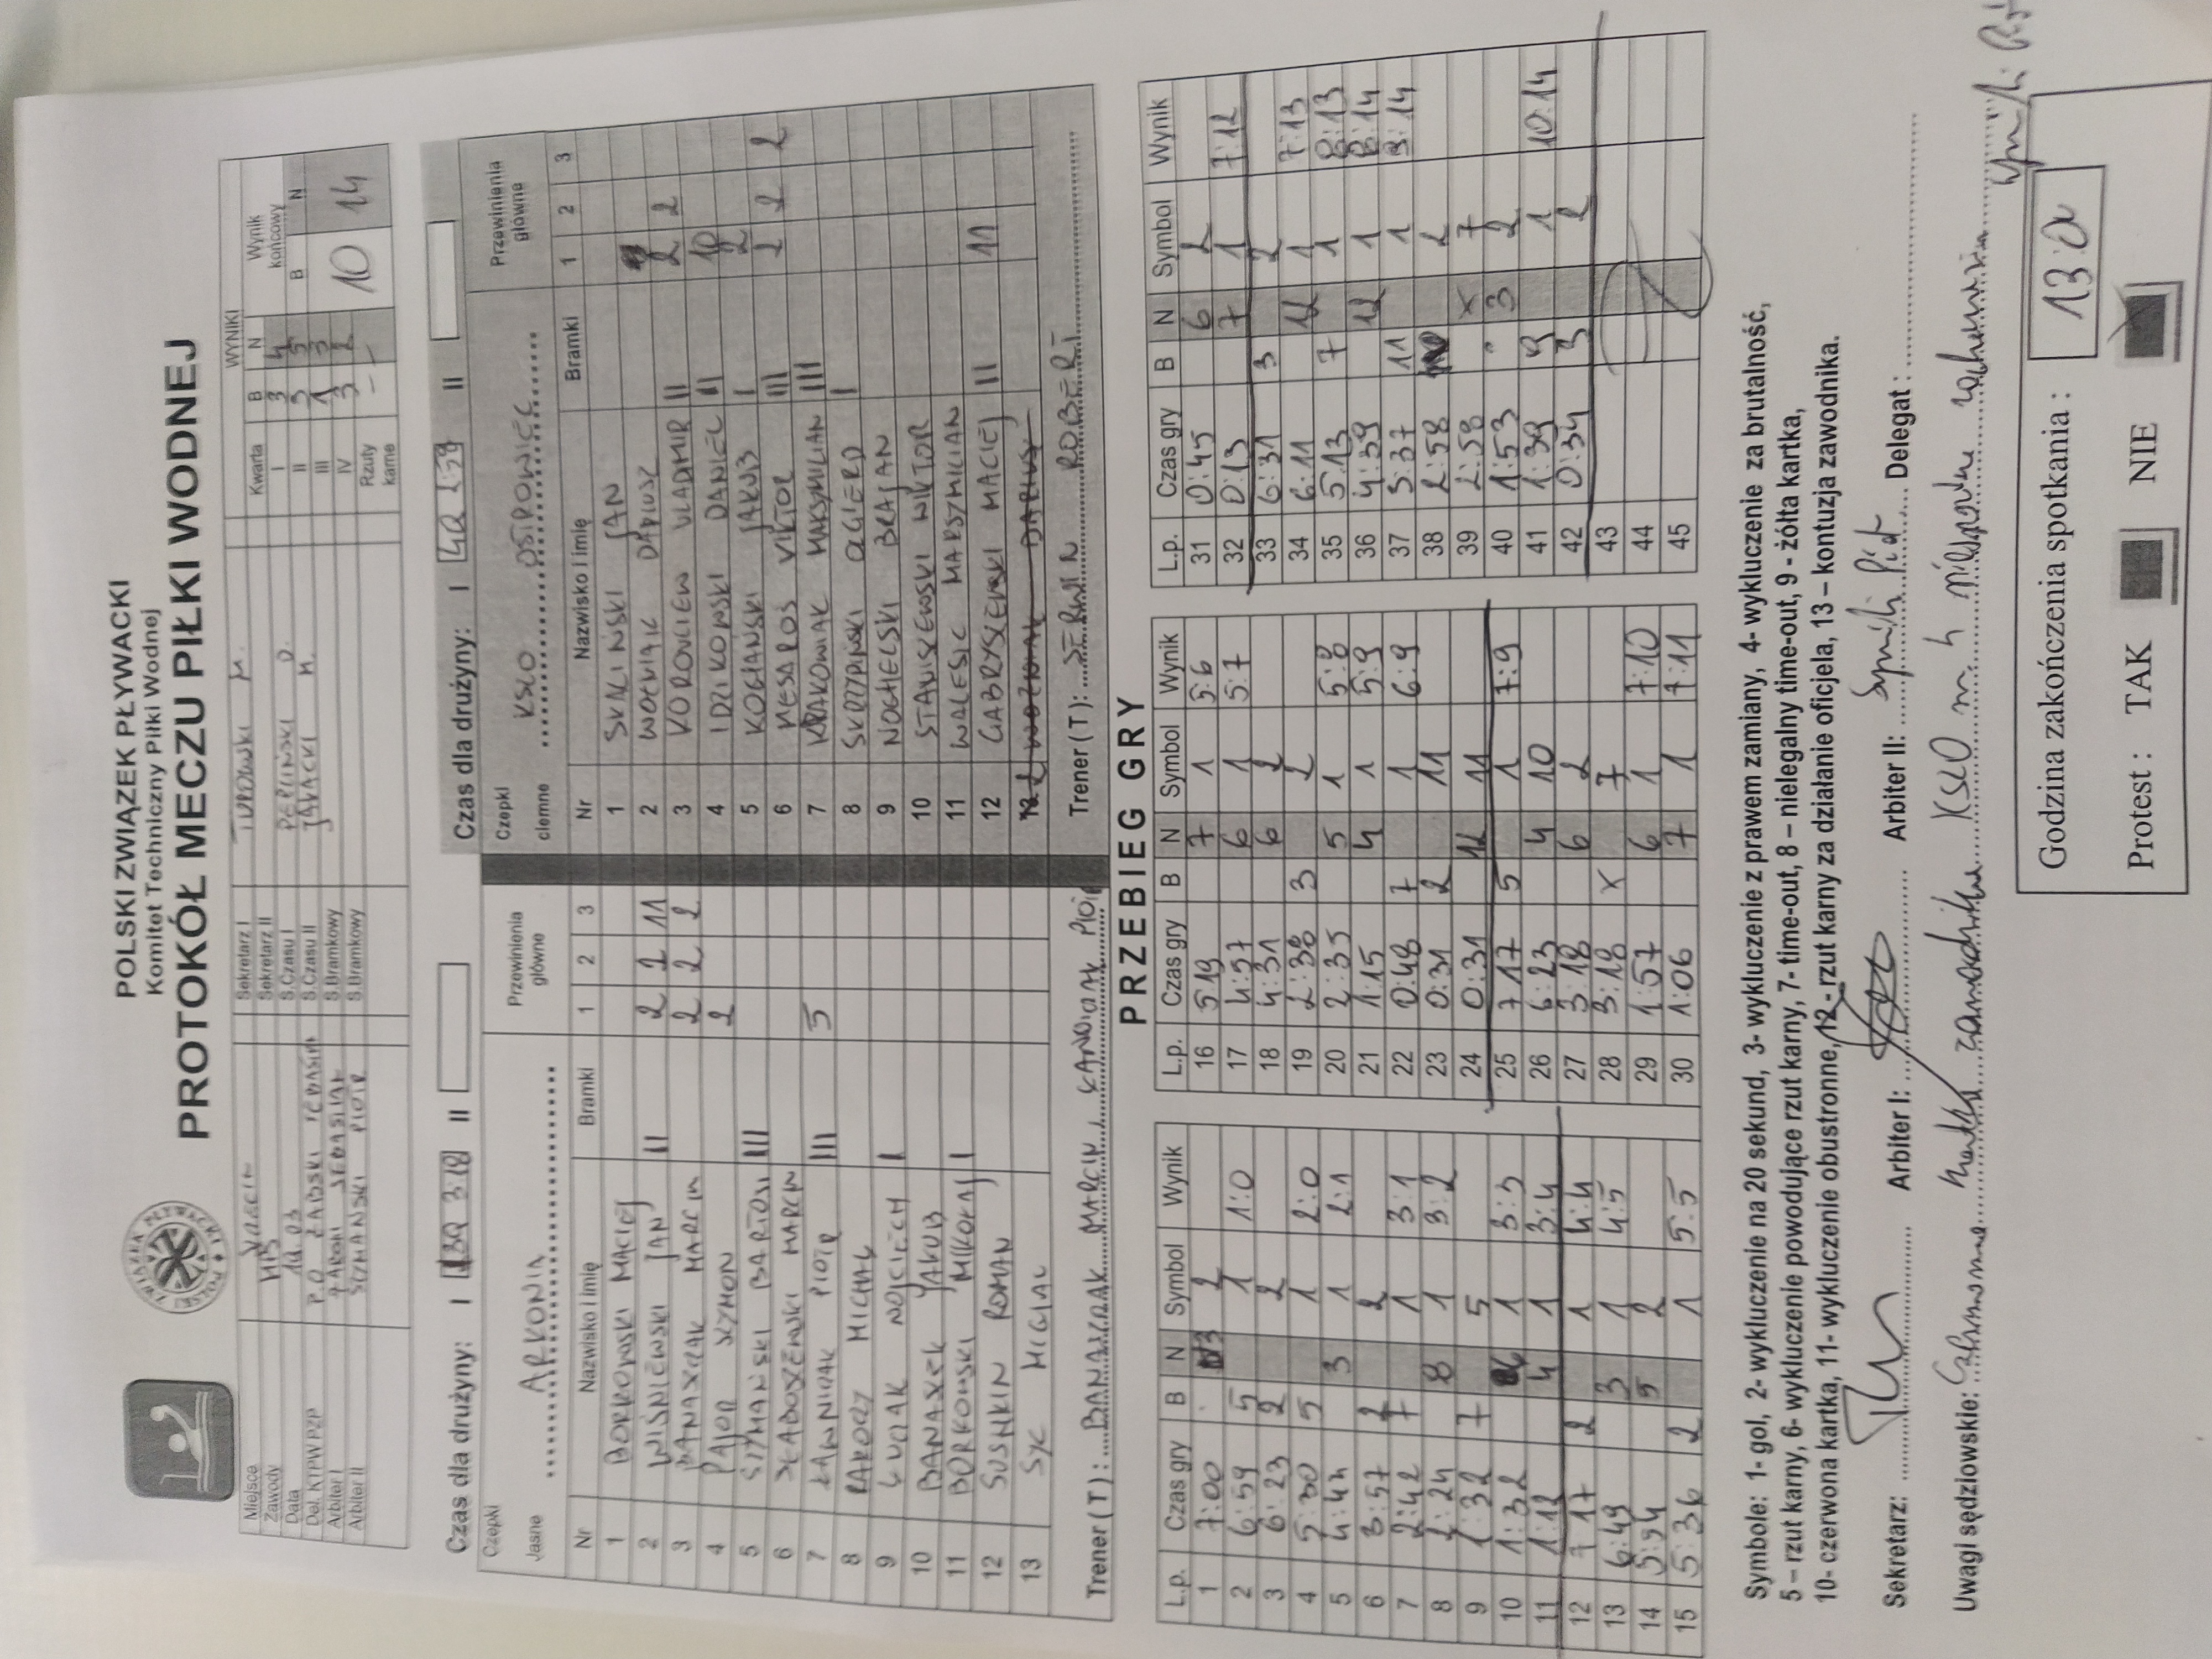 POLSKI ZWIĄZEK PŁYWACKI
Komitet Techniczny Piłki Wodnej
PROTOKÓŁ MECZU PIŁKI WODNEJ
Miejsce
Zawody MP
Data
Del. KTPW PZP
Arbiter I
Arbiter II SZYMAŃSKI PIOTR
Sekretarz I TUROWSKI M.
Sekretarz II
S.Czasu I PEPLIŃSKI D.
S.Czasu II
S.Bramkowy
S.Bramkowy
WYNIKI
Kwarta B N Wynik końcowy
I 3 4 B N
II 3 5 10 14
III 1 3
IV 3 2
Rzuty karne - -
Czas dla drużyny: I 3Q 3:18 II
Czas dla drużyny: I 4Q 2:58 II
Czepki Jasne ARKONIA
Przewinienia główne
Nr Nazwisko i imię Bramki 1 2 3
1 BORKOWSKI MACIEJ
2 WIŚNIEWSKI JAN II 2 2 11
3 BANASZAK MARCIN 2 2 2
4 PAJOR SZYMON 2
5 SZYMAŃSKI BARTOSZ III
6 MARCIN
7 ŁAWNICZAK PIOTR III 5
8 RAKOCZY MICHAŁ
9 WOJCIECH I
10 BANASZEK JAKUB
11 BORKOWSKI MIKOŁAJ I
12 SUSHKIN ROMAN
13 SYC MICHAŁ
Trener (T): BANASZAK MARCIN
Czepki ciemne KSZO OSTROWIEC
Przewinienia główne
Nr Nazwisko i imię Bramki 1 2 3
1 SKALIŃSKI JAN
2 WOŹNIAK DARIUSZ 2
3 KOROVCIEW VLADMIR II 2 2
4 IDZIKOWSKI DANIEL II 10
5 KOCHAŃSKI JAKUB I 2
6 MESAROS VIKTOR III 2 2 2
7 KRAKOWIAK MAKSYMILIAN III
8 SKRZYPIŃSKI OLGIERD I
9 NOCHELSKI BRAJAN
10 STANISZEWSKI WIKTOR
11 WALESIC MAKSYMILIAN
12 GABRYSZEWSKI MACIEJ II 11
WOŹNIAK DARIUSZ
Trener (T): SERWIN ROBERT
PRZEBIEG GRY
L.p. Czas gry B N Symbol Wynik
1 7:00 3 2
2 6:59 5 1 1:0
3 6:23 2 2
4 5:30 5 1 2:0
5 4:44 3 1 2:1
6 3:57 2 2
7 2:42 7 1 3:1
8 2:24 8 1 3:2
9 1:32 7 5
10 1:32 6 1 3:3
11 1:12 4 1 3:4
12 7:17 2 1 4:4
13 6:49 3 1 4:5
14 5:54 5 2
15 5:36 2 1 5:5
L.p. Czas gry B N Symbol Wynik
16 5:19 7 1 5:6
17 4:57 6 1 5:7
18 4:31 6 2
19 2:38 3 2
20 2:35 5 1 5:8
21 1:15 4 1 5:9
22 0:48 7 1 6:9
23 0:31 2 11
24 0:31 12 11
25 7:17 5 1 7:9
26 6:23 4 10
27 3:18 6 2
28 3:18 x 7
29 1:57 6 1 7:10
30 1:06 7 1 7:11
L.p. Czas gry B N Symbol Wynik
31 0:45 6 2
32 0:13 7 1 7:12
33 6:31 3 2
34 6:11 12 1 7:13
35 5:13 7 1 8:13
36 4:39 12 1 8:14
37 3:37 11 1 9:14
38 2:58 2
39 2:58 x 7
40 1:53 3 2
41 1:39 9 1 10:14
42 0:34 3 2
43
44
45
Symbole: 1- gol, 2- wykluczenie na 20 sekund, 3- wykluczenie z prawem zamiany, 4- wykluczenie za brutalność,
5 – rzut karny, 6- wykluczenie powodujące rzut karny, 7- time-out, 8 – nielegalny time-out, 9 - żółta kartka,
10- czerwona kartka, 11- wykluczenie obustronne, 12 - rzut karny za działanie oficjela, 13 – kontuzja zawodnika.
Sekretarz: Arbiter I: Arbiter II: Delegat :
Uwagi sędziowskie: Czerwona kartka zawodnika KSZO nr 4
Godzina zakończenia spotkania :
Protest : TAK NIE